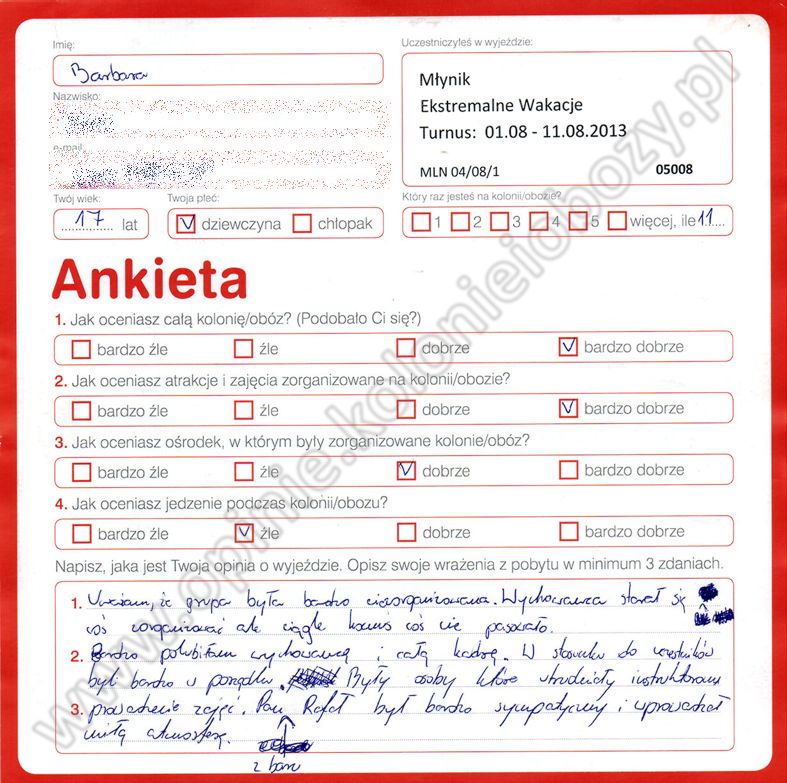 Imię:
Barbara
Uczestniczyłeś w wyjeździe:
Młynik
Ekstremalne Wakacje
Turnus: 01.08 - 11.08.2013
MLN 04/08/1 05008
Nazwisko:
e-mail
Twój wiek:
17 lat
Twoja płeć:
dziewczyna chłopak
Który raz jesteś na kolonii/obozie?
1 2 3 4 5 więcej, ile 11
Ankieta
1. Jak oceniasz całą kolonię/obóz? (Podobało Ci się?)
bardzo źle źle dobrze bardzo dobrze
2. Jak oceniasz atrakcje i zajęcia zorganizowane na kolonii/obozie?
bardzo źle źle dobrze bardzo dobrze
3. Jak oceniasz ośrodek, w którym były zorganizowane kolonie/obóz?
bardzo źle źle dobrze bardzo dobrze
4. Jak oceniasz jedzenie podczas kolonii/obozu?
bardzo źle źle dobrze bardzo dobrze
Napisz, jaka jest Twoja opinia o wyjeździe. Opisz swoje wrażenia z pobytu w minimum 3 zdaniach.
1. Uważam, że grupa była bardzo niezorganizowana. Wychowawca starał się
coś zorganizować ale ciągle komuś coś nie pasowało.
2. Bardzo polubiłam wychowawcę i całą kadrę. W stosunku do uczestników
byli bardzo w porządku. Były osoby które utrudniały instruktorom
3. prowadzenie zajęć. Pan Rafał był bardzo sympatyczny i wprowadzał
miłą atmosferę.
z baru
www.opinie.kolonieiobozy.pl